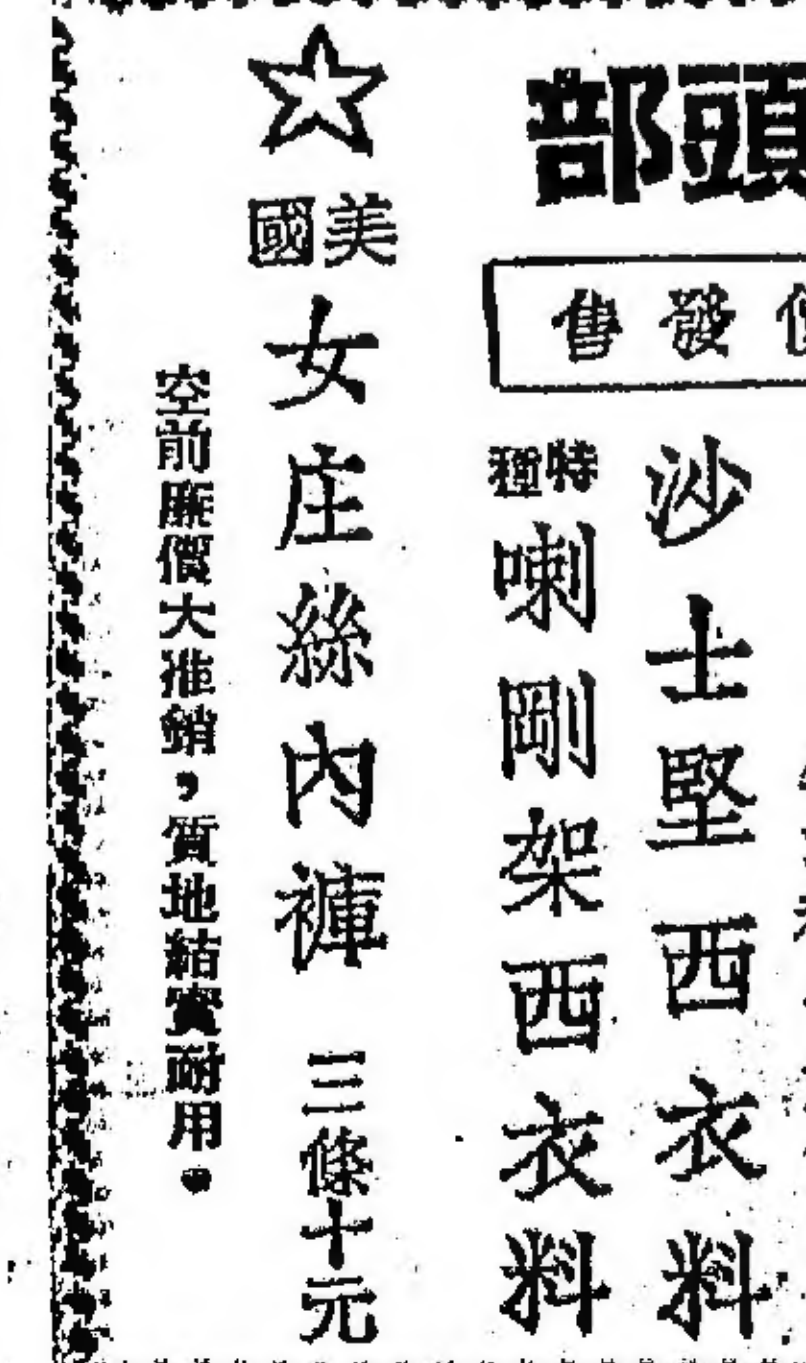 頭部
發售
沙士堅西衣料
特種
喇剛架西衣料
☆
美國
女庄絲內褲 三條十元
空前廉價大推銷，質地結實耐用。